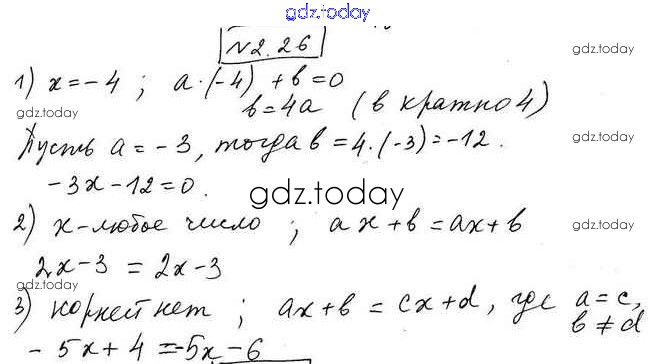 gdz.today
№2.26
gdz.today
1) x=-4 ; a·(-4)+b=0
gdz.today
b=4a (b кратно 4)
Пусть a=-3, тогда b=4·(-3)=-12.
gdz.today
-3x-12=0.
gdz.today
2) x-любое число ; ax+b=ax+b
gdz.today
2x-3=2x-3
gdz.today
3) корней нет ; ax+b=cx+d, где a=c,
b≠d
gdz.today
-5x+4=-5x-6